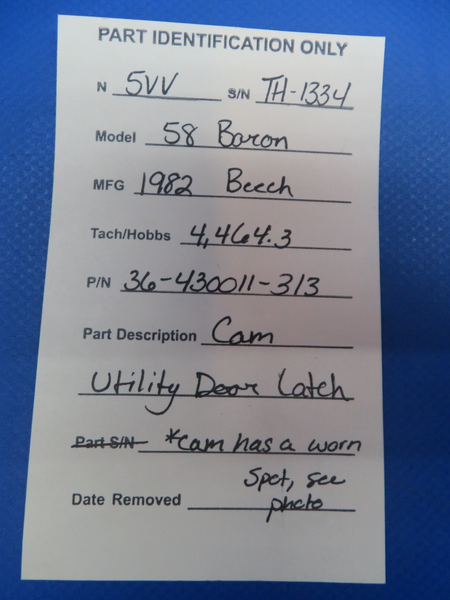 PART IDENTIFICATION ONLY
N 5VV S/N TH-1334
Model 58 Baron
MFG 1982 Beech
Tach/Hobbs 4,464.3
P/N 36-430011-313
Part Description Cam
Utility Door Latch
Part S/N *Cam has a worn
Spot, see
Date Removed photo